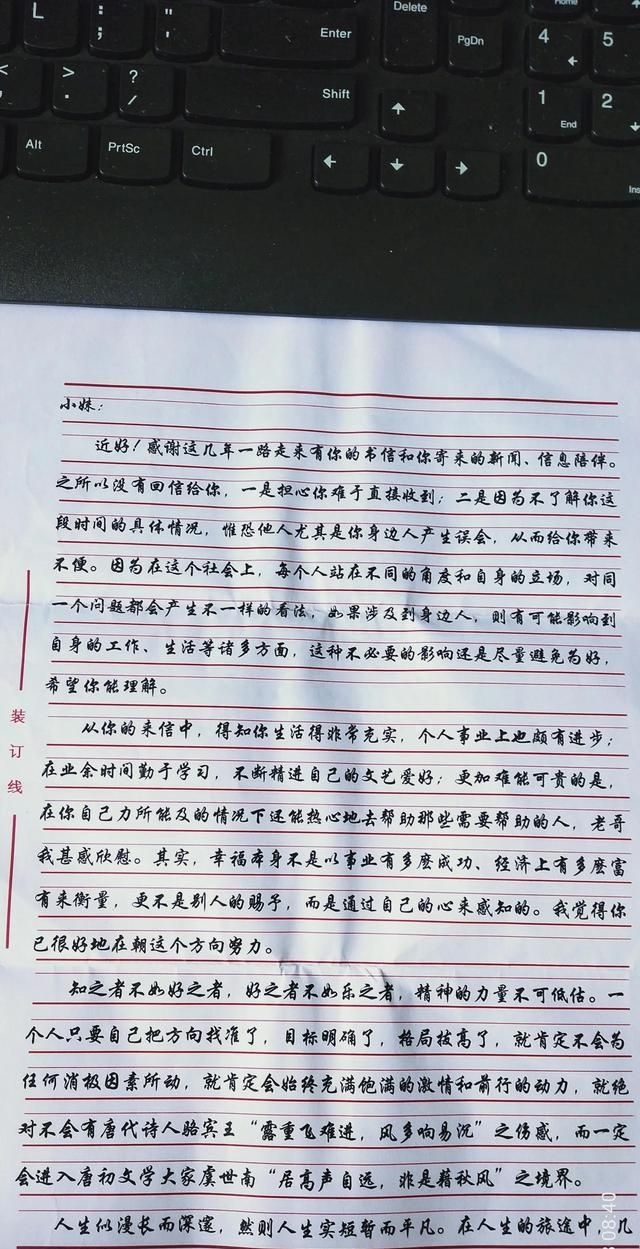 Delete Home
L : ; " ' Enter PgDn 4 5
< > . ? / Shift 1 End 2
Alt PrtSc Ctrl 0 Ins
小妹：
近好！感谢这几年一路走来有你的书信和你寄来的新闻、信息陪伴。
之所以没有回信给你，一是担心你难于直接收到；二是因为不了解你这
段时间的具体情况，惟恐他人尤其是你身边人产生误会，从而给你带来
不便。因为在这个社会上，每个人站在不同的角度和自身的立场，对同
一个问题都会产生不一样的看法，如果涉及到身边人，则有可能影响到
自身的工作、生活等诸多方面，这种不必要的影响还是尽量避免为好，
希望你能理解。
从你的来信中，得知你生活得非常充实，个人事业上也颇有进步；
在业余时间勤于学习，不断精进自己的文艺爱好；更加难能可贵的是，
在你自己力所能及的情况下还能热心地去帮助那些需要帮助的人，老哥
我甚感欣慰。其实，幸福本身不是以事业有多麽成功、经济上有多麽富
有来衡量，更不是别人的赐予，而是通过自己的心来感知的。我觉得你
已很好地在朝这个方向努力。
知之者不如好之者，好之者不如乐之者，精神的力量不可低估。一
个人只要自己把方向找准了，目标明确了，格局拔高了，就肯定不会为
任何消极因素所动，就肯定会始终充满饱满的激情和前行的动力，就绝
对不会有唐代诗人骆宾王“露重飞难进，风多响易沉”之伤感，而一定
会进入唐初文学大家虞世南“居高声自远，非是藉秋风”之境界。
人生似漫长而深邃，然则人生实短暂而平凡。在人生的旅途中，几
装订线
08:40